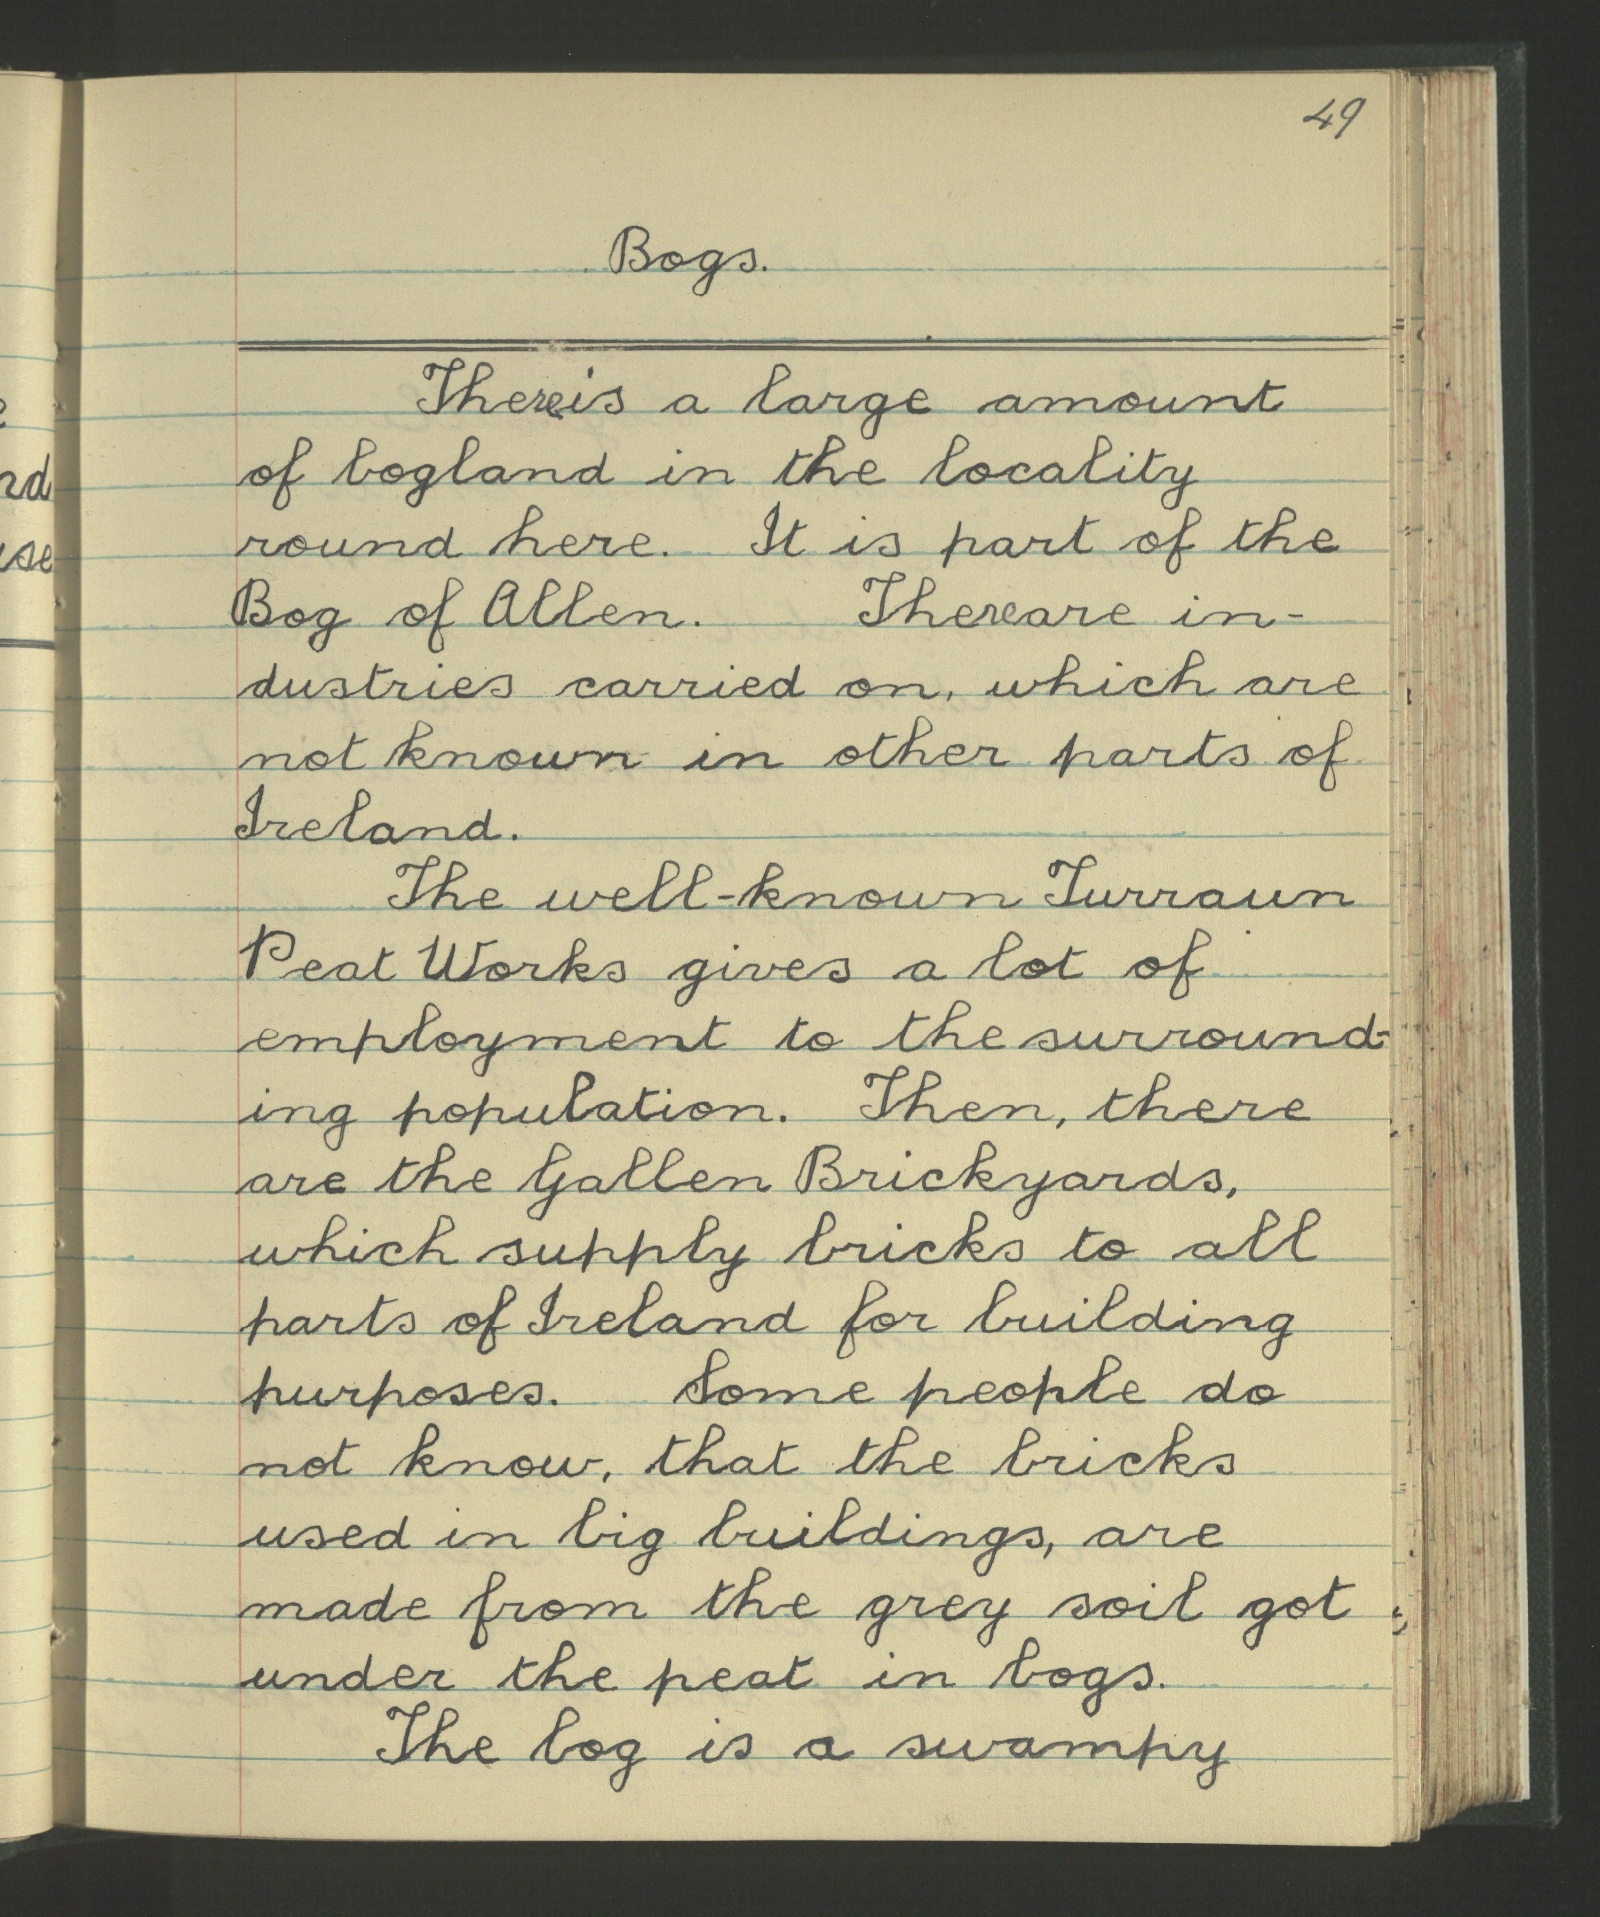 49
Bogs.
There is a large amount
of bogland in the locality
round here. It is part of the
Bog of Allen. There are in-
dustries carried on, which are
not known in other parts of
Ireland.
The well-known Turraun
Peat Works gives a lot of
employment to the surround-
ing population. Then, there
are the Gallen Brickyards,
which supply bricks to all
parts of Ireland for building
purposes. Some people do
not know, that the bricks
used in big buildings, are
made from the grey soil got
under the peat in bogs.
The bog is a swampy